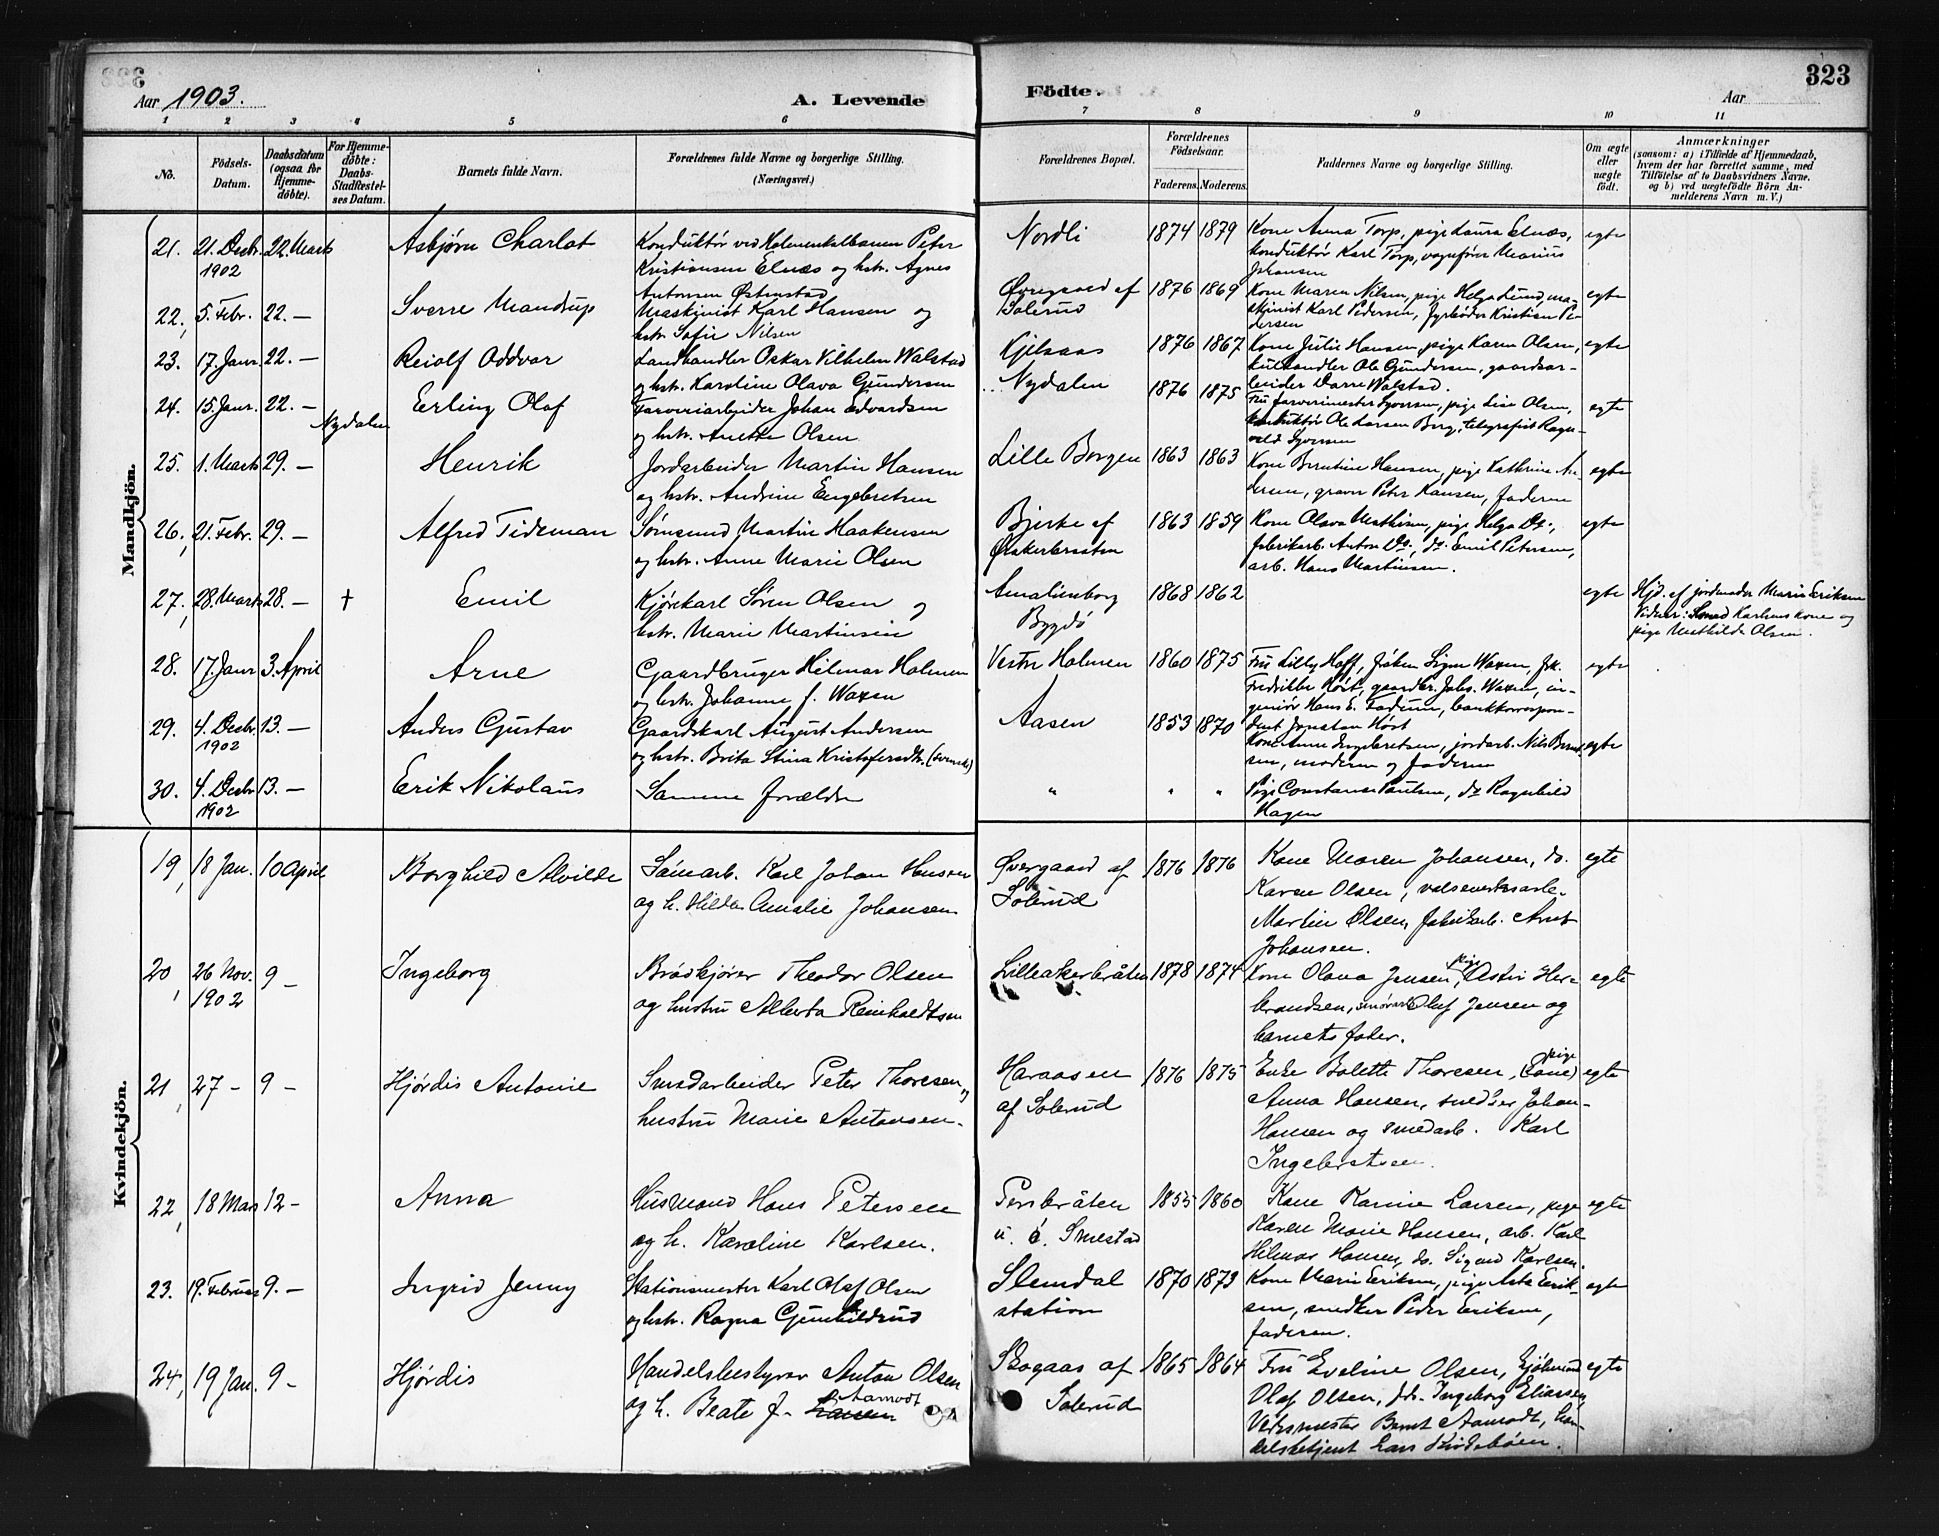 Aar 1903.
A. Levende
Födte.
Aar
323
1 2 3 4 5 6 7 8 9 10 11
No.
Födsels-
Datum.
Daabsdatum
(ogsaa for
Hjemme-
döbte).
For Hjemme-
döbte:
Daabs-
Stadfæstel-
ses Datum.
Barnets fulde Navn.
Forældrenes fulde Navne og borgerlige Stilling.
(Næringsvei.)
Forældrenes Bopæl.
Forældrenes
Födselsaar.
Faderens. Moderens.
Faddernes Navne og borgerlige Stilling.
Om ægte
eller
uægte
födt.
Anmærkninger
(saasom: a) i Tilfælde af Hjemmedaab,
hvem der har forrettet samme, med
Tilföielse af to Daabsvidners Navne,
og b) ved uægtefödte Börn An-
melderens Navn m. V.)
Mandkjön.
21. 21. Decbr. 22. Marts Asbjørn Charlot Konduktør ved Holmenkolbanen Peter Nordli 1874 1879 Kone Anna Torp, pige Laura Elnæs, egte
1902 Kristiansen Elnæs og hstr. Agnes konduktør Karl Torp, vognfører Marius
Antonsen Østenstad Johansen
22, 5. Febr. 22. — Sverre Mandrup Maskinist Karl Hansen og Øvregaard af Solerud 1876 1869 Kone Maren Nilsen, pige Helga Lund, ma- egte
hstr. Sofie Nilsen skinist Karl Pedersen, fyrbøder Kristian Pe-
dersen
23. 17. Janr. 22. — Reiolf Oddvar Landhandler Oskar Vilhelm Walstad Kjelsaas 1876 1867 Kone Julie Hansen, pige Karen Olsen, egte
og hstr. Karoline Olava Gundersen kulhandler Ole Gundersen, gaardsar-
beider Walstad.
24. 15. Janr. 22. — Nydalen Erling Olaf Farveriarbeider Johan Edvardsen Nydalen 1876 1875 Fru farverimester Syversen, pige Lise Olsen, egte
og hstr. Anette Olsen konduktør Ole Larsen Berg, telegrafist Ragn-
vald Syversen
25. 1. Marts 29. — Henrik Jordarbeider Martin Hansen Lille Borgen 1863 1863 Kone Berntine Hansen, pige Kathrine An- egte
og hstr. Andrine Engebretsen dersen, graver Peter Hansen, faderen
26, 21. Febr. 29. — Alfred Tideman Sømsmed Martin Haakensen Bjerke af 1863 1859 Kone Olava Mathisen, pige Helga Do., egte
og hstr. Anne Marie Olsen Ørakerbraaten fabrikarb. Anton Do., do. Emil Petersen,
arb. Hans Martinsen.
27, 28. Marts 28. — † Emil Kjørekarl Søren Olsen og Amalienborg 1868 1862 egte Hjd. af jordmoder Marie Eriksen
hstr. Marie Martinsen Bygdø Vidner: Karlsens kone og
pige Mathilde Olsen.
28. 17. Janr 3. April Arne Gaardbruger Hilmar Holmen Vestre Holmen 1860 1875 Fru Lilly Hoff, frøken Signe Waxen, frk. egte
og hstr. Johanne f. Waxen Fredrikke Høst, gaardbr. Johs. Waxen, in-
geniør Hans E. Fadum, bankkorrespon-
dent Jonatan Høst
29. 4. Decbr. 13. — Anders Gustav Gaardskarl August Andersen Aasen 1853 1870 Kone Anne Ingebretsen, jordarb. Nils Bernt- egte
1902 og hstr. Brita Stina Kristofersdtr. (svensk) sen, moderen og faderen
30. 4. Decbr. 13. — Erik Nikolaus Samme forældre " " " Pige Constance Paulsen, do Ragnhild
1902 Hagen
Kvindekjön.
19, 18 Jan. 10 April Borghild Alvilde Sømarb. Karl Johan Hansen Øvergaard af 1876 1876 Kone Maren Johansen, do. egte
og h. Hilda Amalie Johansen Solerud Karen Olsen, valseverksarb.
Martin Olsen, fabrikarb. Arnt
Johansen.
20, 26 Nov. 9 — Ingeborg Brødkjører Theodor Olsen Lilleakerbråten 1878 1874 Kone Olava Jensen, pige Astri Her- egte
1902 og hustru Alberta Reinholdtsen brandsen, Oluf Jensen og
barnets fader.
21, 27 — 9 — Hjørdis Antonie Smedarbeider Peter Thoresen og Haraasen 1876 1875 Enke Bolette Thoresen, (kone) pige egte
hustru Marie Antonsen. af Solerud Anna Hansen, snedker Johan
Hansen og smedarb. Karl
Ingebretsen.
22, 18 Mars 12 — Anna Husmand Hans Petersen Persbråten 1855 1860 Kone Karine Larsen, pige egte
og h. Karoline Karlsen. u. ö. Smestad Karen Marie Hansen, arb. Karl
Hilmar Hansen, do. Sigurd Karlsen.
23. 19. Februar 9. — Ingrid Jenny Stationsmester Karl Olaf Olsen Slemdal 1870 1873 Kone Marie Eriksen, pige Asta Erik- egte
og hstr. Ragna Gunhildrud station sen, snedker Peder Eriksen,
faderen.
24, 19 Jan. 9 — Hjørdis Handelsbestyrer Anton Olsen Skogaas af 1865 1864 Fru Eveline Olsen, Kjøbmand egte
og h. Beate f. Aamodt Solerud Olaf Olsen, frk. Ingeborg Eliassen,
Verksmester Bernt Aamodt, han-
delsbetjent Lars